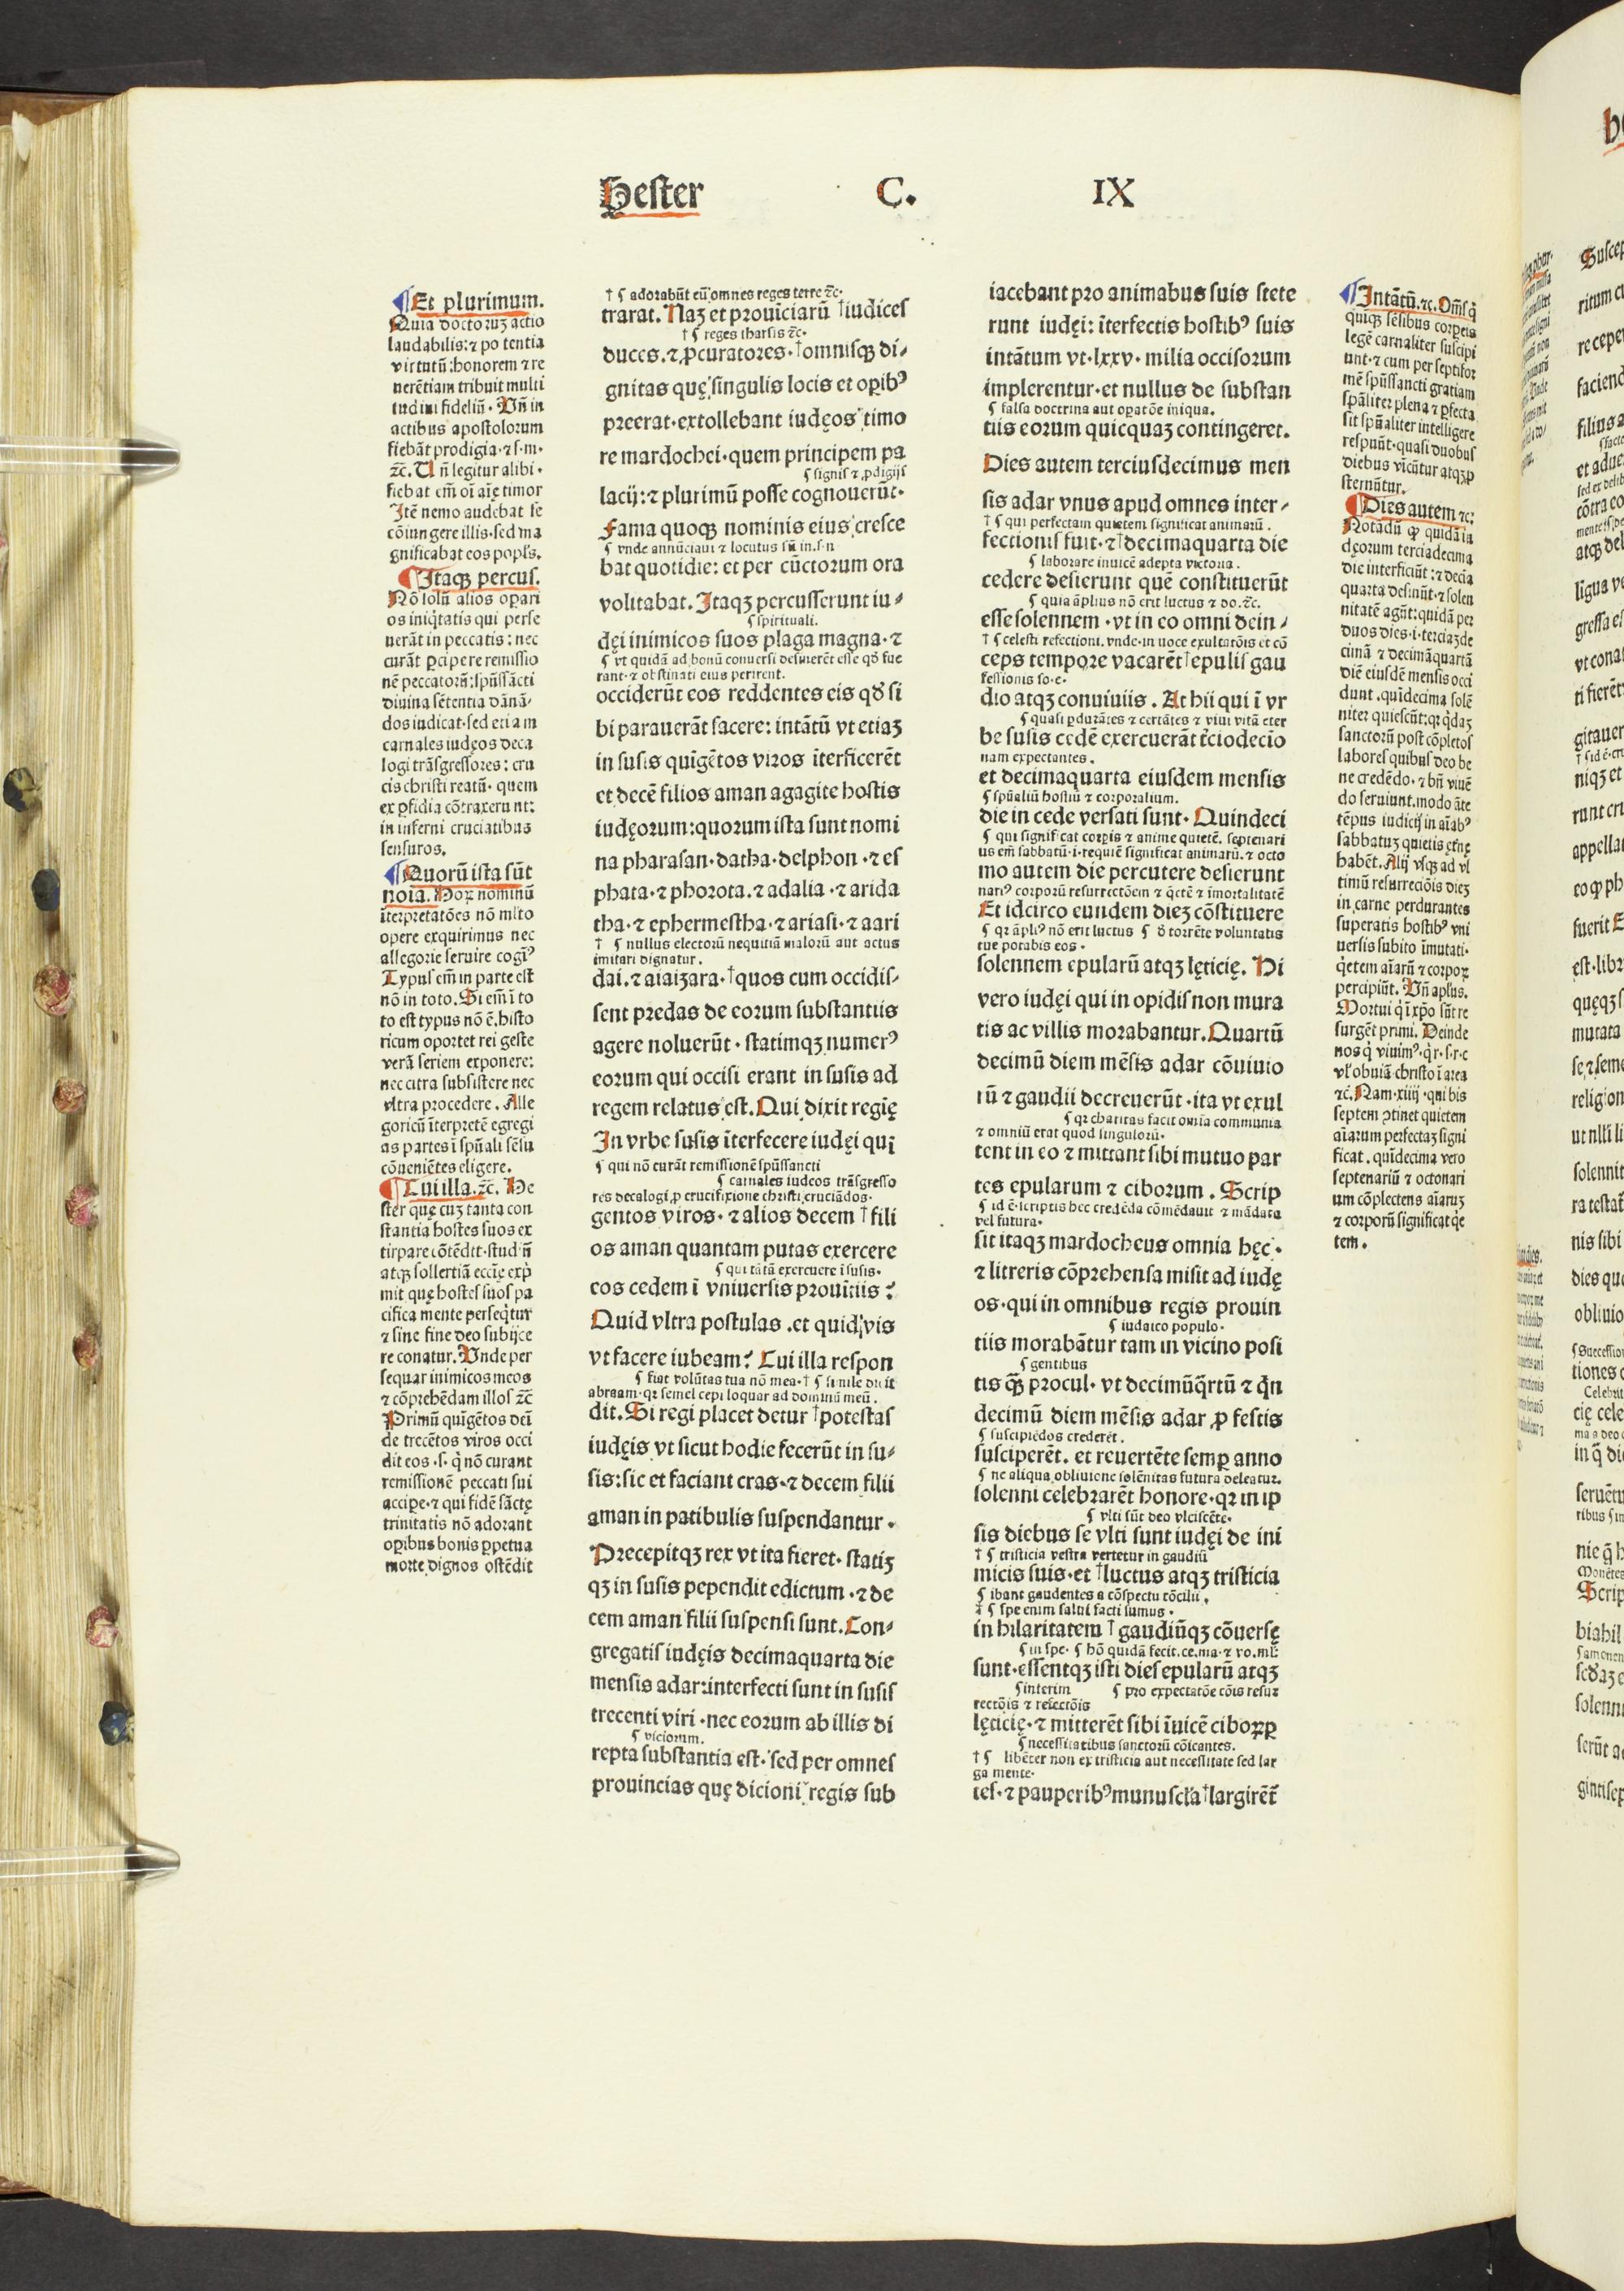 Hester C. IX
¶Et plurimum.
Quia doctoruꝫ actio
laudabilis:⁊ po tentia
virtutū:honorem ⁊ re
uerētiam tribuit multi
tudini fideliū. Vn̄ in
actibus apostolorum
fiebāt prodigia.⁊ s.m.
⁊c̄. Un̄ legitur alibi.
fiebat em̄ oī aīę timor
Itē nemo audebat se
cōiungere illis.sed ma
gnificabat eos popl's.
¶Itaqꝫ percus.
Nō solū alios oꝑari
os iniq̇tatis qui perse
uerāt in peccatis: nec
curāt ꝑcipere remissio
nē peccatorū:spūssācti
diuina sētentia dānā-
dos iudicat.sed etiam
carnales iudęos deca
logi trāsgressores: cru
cis christi reatū. quem
ex ꝑfidia cōtraxerunt:
in inferni cruciatibus
sensuros.
¶Quorū ista sūt
noīa. Hoꝝ nominū
īterpretatōes nō ml'to
opere exquirimus nec
allegorie seruire cogīꝰ
Typus em̄ in parte est
nō in toto. Si em̄ ī to
to est typus nō ē.histo
ricum oportet rei geste
verā seriem exponere:
nec citra subsistere nec
vltra procedere. Alle
goricū īterpretē egregi
as partes ī spūali sēsu
cōueniētes eligere.
¶Cui illa.⁊c̄. He
ster quę cuꝫ tanta con
stantia hostes suos ex
tirpare cōtēdit.studiū
atqꝫ sollertiā eccīę exp̄
mit quę hostes suos pa
cifica mente perseq̇tur
⁊ sine fine deo subijce
re conatur. Vnde per
sequar inimicos meos
⁊ cōprehēdam illos ⁊c̄
Primū quīgētos deī
de trecētos viros occi
dit eos .s. q̇ nō curant
remissionē peccati sui
accipe.⁊ qui fidē sāctę
trinitatis nō adorant
oꝑibus bonis ꝑpetua
morte dignos ostēdit
† ¶ adorabūt eū omnes reges terre ⁊c̄.
trarat. Naꝫ et prouīciarū †iudices
† ¶ reges tharsis ⁊c̄.
duces.⁊ ꝓcuratores. †omnisqꝫ di-
gnitas quę singulis locis et oꝑibꝰ
preerat.extollebant iudęos timo
re mardochei.quem principem pa
¶ signis ⁊ ꝓdigijs
lacij:⁊ plurimū posse cognouerūt.
Fama quoqꝫ nominis eius cresce
¶ vnde annūciaui ⁊ locutus sū in.s.n
bat quotidie: et per cūctorum ora
volitabat. Itaqꝫ percusserunt iu-
¶ spirituali.
dęi inimicos suos plaga magna.⁊
¶ vt quidā ad bonū conuersi desinerēt esse qď fue
rant.⁊ obstinati eius perirent.
occiderūt eos reddentes eis qď si
bi parauerāt facere: intātū vt etiaꝫ
in susis quīgētos viros īterficerēt
et decē filios aman agagite hostis
iudęorum:quorum ista sunt nomi
na pharasan.datha.delphon.⁊ es
phata.⁊ phorota.⁊ adalia.⁊ arida
tha.⁊ ephermestha.⁊ ariasi.⁊ aari
† ¶ nullus electorū nequitiā malorū aut actus
imitari dignatur.
dai.⁊ aiaizara. †quos cum occidis-
sent predas de eorum substantiis
agere noluerūt. statimqꝫ numerꝰ
eorum qui occisi erant in susis ad
regem relatus est. Qui dixit regię
In vrbe susis īterfecere iudęi qui
¶ qui nō curāt remissionē spūssancti
¶ carnales iudeos trāsgresso
res decalogi ꝓ crucifixione christi cruciādos.
gentos viros. ⁊ alios decem †fili
os aman quantam putas exercere
¶ qui tātā exercuere ī susis.
eos cedem ī vniuersis prouīciis?
Quid vltra postulas .et quid vis
vt facere iubeam? Cui illa respon
¶ fiat volūtas tua nō mea. † ¶ simile dixit
abraam.qꝛ semel cepi loquar ad dominū meū.
dit. Si regi placet detur †potestas
iudęis vt sicut hodie fecerūt in su-
sis:sic et faciant cras.⁊ decem filii
aman in patibulis suspendantur.
Precepitqꝫ rex vt ita fieret. statiꝫ
qꝫ in susis pependit edictum .⁊ de
cem aman filii suspensi sunt. Con-
gregatis iudęis decimaquarta die
mensis adar:interfecti sunt in susis
trecenti viri .nec eorum ab illis di
¶ viciorum.
repta substantia est. sed per omnes
prouincias quę dicioni regis sub
iacebant pro animabus suis stete
runt iudęi: īterfectis hostibꝰ suis
intātum vt.lxxv. milia occisorum
implerentur.et nullus de substan
¶ falsa doctrina aut oꝑatōe iniqua.
tiis eorum quicquaꝫ contingeret.
Dies autem terciusdecimus men
sis adar vnus apud omnes inter-
† ¶ qui perfectam quietem significat animarū.
fectionis fuit.⁊ †decimaquarta die
¶ laborare inuicē adepta victoria.
cedere desierunt quē constituerūt
¶ quia āplius nō erit luctus ⁊ do.⁊c̄.
esse solennem .vt in eo omni dein-
† ¶ celesti refectioni.vnde.in uoce exultatōis et cō
ceps tempore vacarēt †epulis gau
fessionis so.e.
dio atqꝫ conuiuiis. At hii qui ī vr
¶ quasi ꝑdurātes ⁊ certātes ⁊ viui vitā eter
be susis cedē exercuerāt t̄ciodecīo
nam expectantes.
et decimaquarta eiusdem mensis
¶ spūaliū hostiū ⁊ corporalium.
die in cede versati sunt. Quindeci
¶ qui significat corꝑis ⁊ anime quietē. septenari
us em̄ sabbatū.i.requiē significat animarū.⁊ octo
mo autem die percutere desierunt
nariꝰ corporū resurrectōem ⁊ q̇etē ⁊ imortalitatē
Et idcirco eundem dieꝫ cōstituere
¶ qꝛ āpliꝰ nō erit luctus ¶ ď torrēte voluntatis
tue potabis eos.
solennem epularū atqꝫ lęticię. Hi
vero iudęi qui in opidis non mura
tis ac villis morabantur. Quartū
decimū diem mēsis adar cōuiuio
rū ⁊ gaudii decreuerūt .ita vt exul
¶ qꝛ charitas facit omnia communia
⁊ omniū erat quod singulorū.
tent in eo ⁊ mittant sibi mutuo par
tes epularum ⁊ ciborum. Scrip
¶ id ē.scriptis hec credēda cōmēdauit ⁊ mādata
vel futura.
sit itaqꝫ mardocheus omnia hęc.
⁊ litreris cōprehensa misit ad iudę
os.qui in omnibus regis prouin
¶ iudaico populo.
tiis morabātur tam in vicino posi
¶ gentibus
tis qꝫ̄ procul. vt decimūq̄rtū ⁊ q̇n
decimū diem mēsis adar ꝓ festis
¶ suscipiēdos crederēt.
susciperēt. et reuertēte semꝑ anno
¶ ne aliqua obliuione solēnitas futura deleatur.
solenni celebrarēt honore.qꝛ in ip
¶ vlti sūt deo vlciscēte.
sis diebus se vlti sunt iudęi de ini
† ¶ tristicia vestra vertetur in gaudiū
micis suis.et †luctus atqꝫ tristicia
¶ ibant gaudentes a cōspectu cōcilii.
‡ ¶ spe enim salui facti sumus.
in hilaritatem †gaudiūqꝫ cōuerse
¶ in spe. ¶ hō quidā fecit.ce.ma.⁊ vo.ml'.
sunt.essentqꝫ isti dies epularū atqꝫ
¶ interim ¶ pro expectatōe cōis resur
rectōis ⁊ refectōis
lęticię.⁊ mitterēt sibi īuicē ciboꝝ ꝑ
¶ necessitatibus sanctorū cōicantes.
† ¶ libēter non ex tristicia aut necessitate sed lar
ga mente.
tes.⁊ pauperibꝰ munuscl'a †largirēt̄
¶Intātū.⁊c. Oms̄ q̇
quiqꝫ sēsibus corꝑeis
legē carnaliter suscipi
unt.⁊ cum per septifor
mē spūssancti gratiam
spāliter plena ⁊ ꝑfecta
sit spūaliter intelligere
respuūt.quasi duobus
diebus vicūtur atqꝫ ꝓ
sternūtur.
¶Dies autem ⁊c:
Notadū ꝙ quidā iu
dęorum terciadecima
die interficiūt:⁊ decia
quarta desinūt.⁊ solen
nitatē agūt:quidā per
duos dies.i.terciaꝫde
cimā ⁊ decimāquartā
diē eiusdē mensis occi
dunt .quīdecima solē
niter quiescūt:qꝛ q̇daꝫ
sanctorū post cōpletos
labores quibus deo be
ne credēdo.⁊ bn̄ viuē
do seruiunt.modo āte
tēpus iudicij in aīabꝰ
sabbatuꝫ quietis etn̄ę
habēt. Alij vsqꝫ ad vl
timū resurreciōis dieꝫ
in carne perdurantes
superatis hostibꝰ vni
uersis subito īmutati.
q̇etem aīarū ⁊ corpoꝝ
percipiūt. Vn̄ apl'us.
Mortui q̇ ī xp̄o sūt re
surgēt primi. Deinde
nos q̇ viuimꝰ.q̇ r.s.r.c
vl' obuiā christo ī aera
⁊c̄. Nam.xiiij .qui bis
septem ꝯtinet quietem
aīarum perfectaꝫ signi
ficat .quīdecima vero
septenariū ⁊ octonari
um cōplectens aīaruꝫ
⁊ corporū significat q̇e
tem.